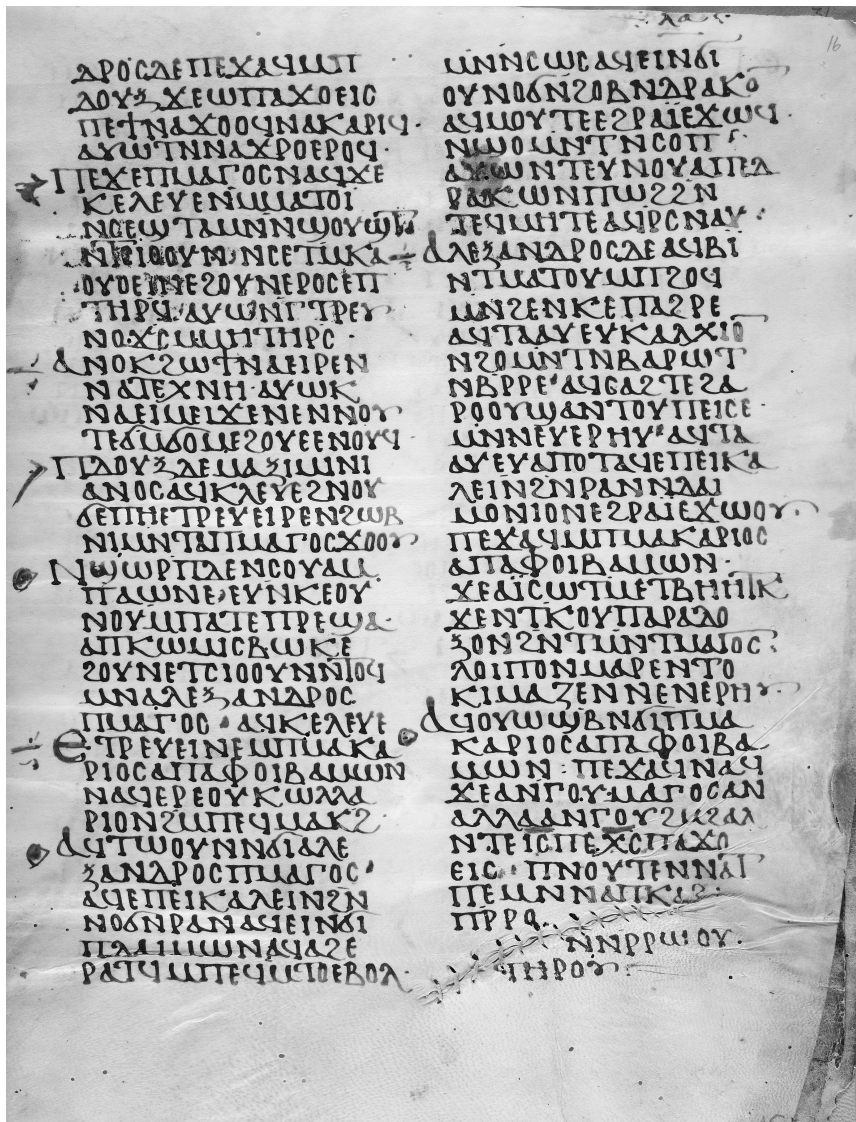 ⲗⲁ
16
ⲇⲣⲟⲥⲇⲉⲡⲉϫⲁϥⲙⲡ
ⲇⲟⲩⲝϫⲉⲱⲡⲁϫⲟⲉⲓⲥ
ⲡⲉϯⲛⲁϫⲟⲟϥⲛⲁⲕⲁⲣⲓϥ·
ⲁⲩⲱⲧⲛⲛⲁϫⲣⲟⲉⲣⲟϥ·
ⲡⲉϫⲉⲡⲙⲁⲅⲟⲥⲛⲁϥϫⲉ
ⲕⲉⲗⲉⲩⲉⲛⲙⲙⲁⲧⲟⲓ
ⲛⲥⲉϣⲧⲁⲙⲛⲛϣⲟⲩϣⲧ
ⲛⲧⲉⲓⲟⲟⲩⲛⲛⲥⲉⲧⲙⲕⲁ
ⲟⲩⲟⲉⲓⲛⲉϩⲟⲩⲛⲉⲣⲟⲥⲉⲡ
ⲧⲏⲣϥ·ⲁⲩⲱⲛⲅⲧⲣⲉⲩ
ⲛⲟϫⲥⲙⲙⲏⲧⲏⲣⲥ·
ⲁⲛⲟⲕϩⲱϯⲛⲁⲉⲓⲣⲉⲛ
ⲛⲁⲧⲉⲭⲛⲏ·ⲁⲩⲱⲕ
ⲛⲁⲉⲓⲙⲉⲓϫⲉⲛⲉⲛⲛⲟⲩ
ⲧⲉϭⲙϭⲟⲙⲉϩⲟⲩⲉⲉⲛⲟⲩϥ·
ⲡⲇⲟⲩⲝⲇⲉⲙⲁⲝⲓⲙⲓⲛⲓ
ⲁⲛⲟⲥⲁϥⲕⲗⲉⲩⲉϩⲛⲟⲩ
ϭⲉⲡⲏⲉⲧⲣⲉⲩⲉⲓⲣⲉⲛϩⲱⲃ
ⲛⲓⲙⲛⲧⲁⲡⲙⲁⲅⲟⲥϫⲟⲟⲩ
ⲛϣⲱⲣⲡⲇⲉⲛⲥⲟⲩⲁⲙ
ⲡⲁⲱⲛⲉ·ⲉⲩⲛⲕⲉⲟⲩ
ⲛⲟⲩⲙⲡⲁⲧⲉⲡⲣⲉϣⲁ·
ⲁⲡⲕⲱⲙⲓⲥⲃⲱⲕⲉ
ϩⲟⲩⲛⲉⲧⲥⲓⲟⲟⲩⲛⲛⲧⲟϥ
ⲙⲛⲁⲗⲉⲝⲁⲛⲇⲣⲟⲥ
ⲡⲙⲁⲅⲟⲥ·ⲁϥⲕⲉⲗⲉⲩⲉ
ⲉⲧⲣⲉⲩⲉⲓⲛⲉⲙⲡⲙⲁⲕⲁ
ⲣⲓⲟⲥⲁⲡⲁⲫⲟⲓⲃⲁⲙⲙⲱⲛ
ⲛⲁϥⲉⲣⲉⲟⲩⲕⲱⲗⲗⲁ
ⲣⲓⲟⲛϩⲙⲡⲉϥⲙⲁⲕϩ·
ⲁϥⲧⲱⲟⲩⲛⲛϭⲓⲁⲗⲉ
ⲝⲁⲛⲇⲣⲟⲥⲡⲙⲁⲅⲟⲥ·
ⲁϥⲉⲡⲉⲓⲕⲁⲗⲉⲓⲛϩⲛ
ⲛⲟϭⲛⲣⲁⲛⲁϥⲉⲓⲛϭⲓ
ⲡⲇⲁⲓⲙⲱⲛⲁϥⲁϩⲉ
ⲣⲁⲧϥⲙⲡⲉϥⲙⲧⲟⲉⲃⲟⲗ·
ⲙⲛⲛⲥⲱⲥⲁϥⲉⲓⲛϭⲓ
ⲟⲩⲛⲟϭⲛϩⲟⲃⲛⲇⲣⲁⲕⲟ
ⲁϥⲙⲟⲩⲧⲉⲉϩⲣⲁⲓⲉϫⲱϥ·
ⲛϣⲟⲙⲛⲧⲛⲥⲟⲡ
ⲁϫⲱⲛⲧⲉⲩⲛⲟⲩⲁⲡⲉⲇ
ⲣⲁⲕⲱⲛⲡⲱϩϩⲛ
ⲧⲉϥⲙⲏⲧⲉⲁϥⲣⲥⲛⲁⲩ·
ⲁⲗⲉⲝⲁⲛⲇⲣⲟⲥⲇⲉⲁϥⲃⲓ
ⲛⲧⲙⲁⲧⲟⲩⲙⲡϩⲟϥ
ⲙⲛϩⲉⲛⲕⲉⲡⲁϩⲣⲉ
ⲁϥⲧⲁⲁⲩⲉⲩⲕⲁⲗⲭⲓⲟ
ⲛϩⲟⲙⲛⲧⲛⲃⲁⲣⲱⲧ
ⲛⲃⲣⲣⲉ·ⲁϥⲥⲁϩⲧⲉϩⲁ
ⲣⲟⲟⲩϣⲁⲛⲧⲟⲩⲡⲉⲓⲥⲉ·
ⲙⲛⲛⲉⲩⲉⲣⲏⲩ·ⲁϥⲧⲁ
ⲁⲩⲉⲩⲁⲡⲟⲧⲁϥⲉⲡⲉⲓⲕⲁ
ⲗⲉⲓⲛϩⲛⲣⲁⲛⲛⲇⲁⲓ
ⲙⲟⲛⲓⲟⲛⲉϩⲣⲁⲓⲉϫⲱⲟⲩ·
ⲡⲉϫⲁϥⲙⲡⲙⲁⲕⲁⲣⲓⲟⲥ
ⲁⲡⲁⲫⲟⲓⲃⲁⲙⲱⲛ·
ϫⲉⲁⲓⲥⲱⲧⲙⲉⲧⲃⲏⲏⲧⲕ
ϫⲉⲛⲧⲕⲟⲩⲡⲁⲣⲁⲇⲟ
ⲝⲟⲛϩⲛⲧⲙⲛⲧⲙⲁⲅⲟⲥ·
ⲗⲟⲓⲡⲟⲛⲙⲁⲣⲉⲛⲧⲟ
ⲕⲓⲙⲁⲍⲉⲛⲛⲉⲛⲉⲣⲏⲩ·
ⲁϥⲟⲩⲱϣⲃⲛϭⲓⲡⲙⲁ
ⲕⲁⲣⲓⲟⲥⲁⲡⲁⲫⲟⲓⲃⲁ
ⲙⲙⲱⲛ·ⲡⲉϫⲁϥⲛⲁϥ
ϫⲉⲁⲛⲅⲟⲩⲙⲁⲅⲟⲥⲁⲛ
ⲁⲗⲗⲁⲁⲛⲅⲟⲩϩⲙϩⲁⲗ
ⲛⲧⲉⲓⲥⲡⲉⲭⲥⲡⲁϫⲟ
ⲉⲓⲥ·ⲡⲛⲟⲩⲧⲉⲛⲛⲁⲧ
ⲡⲉⲙⲛⲛⲁⲡⲕⲁϩ·
ⲡⲣⲣⲟ
ⲛⲛⲣⲣⲱⲟⲩ·
ⲧⲏⲣⲟⲩ·